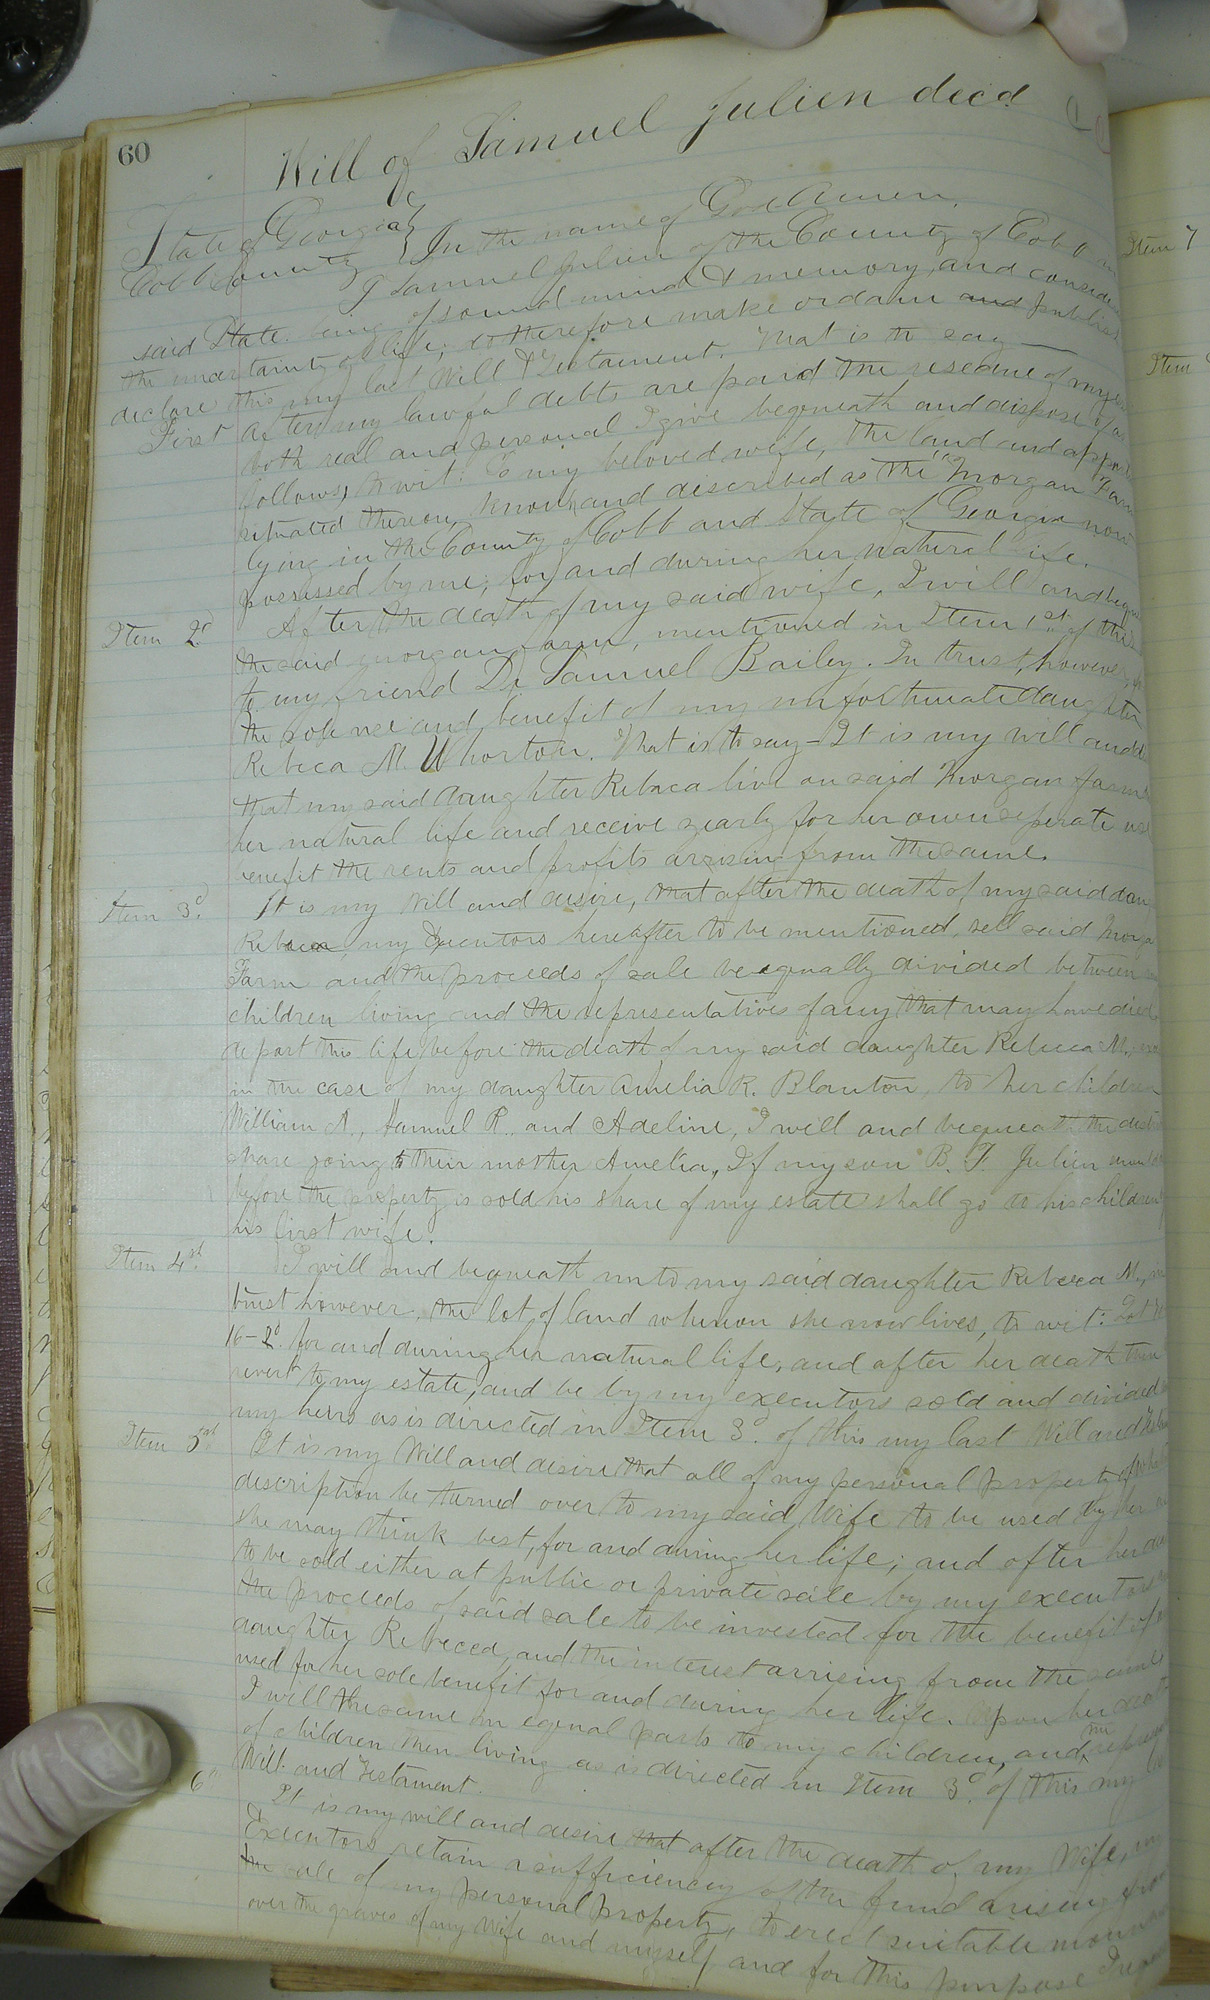 60
Will of Samuel Julien decd
State of Georgia }
Cobb County } In the name of God Amen.
I Samuel Julien of the County of Cobb
said State being of sound mind & memory, and
the uncertainty of life; do therefore make ordain and publish
declare this my last Will & Testament. That is to say —
First After my lawful debts are paid the resedue of my
both real and personal I give bequeath and dispose of as
follows, to wit: To my beloved wife, the land and
situated thereon, known and described as the "Morgan Farm
lying in the County of Cobb and State of Georgia now
possessed by me, for and during her natural life.
Item 2d After the death of my said wife, I will and
the said Morgan Farm, mentioned in Item 1st of this
to my friend Dr Samuel Bailey. In trust, however,
the sole use and benefit of my unfortunate daughter
Rebeca M. Whorton. That is to say - It is my will and
that my said daughter Rebeca live on said Morgan farm
her natural life and receive yearly for her own seperate use
benefit the rents and profits arrising from the same.
Item 3d It is my Will and desire, that after the death of my said
Rebeca, my Executors hereafter to be mentioned, sell said
Farm and the proceeds of sale be equally divided between
children living and the representatives of any that may have died
depart this life before the death of my said daughter Rebeca M.,
in the case of my daughter Amelia R. Blanton, to her children
William A., Samuel R. and Adeline, I will and bequeath the
share going to their mother Amelia. If my son B. F. Julien
before the property is sold his share of my estate shall go to his children
his first wife.
Item 4st I will and bequeath unto my said daughter Rebeca M.,
trust however, the lot of land whereon she now lives, to wit: Lot
16-2d for and during her natural life, and after her death then
revert to my estate, and be by my executors sold and divided
my heirs as is directed in Item 3d of this my last Will and
Item 5st It is my Will and desire that all of my personal property of
description be turned over to my said Wife to be used by her
she may think best, for and during her life; and after her
to be sold either at public or private sale by my executors
the proceeds of said sale to be invested for the benefit of
daughter Rebeca, and the interest arrising from the same
used for her sole benefit for and during her life. Upon her
I will the same in equal parts to my children, and
of children then living as is directed in Item 3d of this my
Will and Testament.
6 It is my will and desire that after the death of my Wife,
Executors retain a sufficiency of the fund arising from
the sale of my personal property, to erect suitable
over the graves of my Wife and myself and for this purpose
Item 7
Item